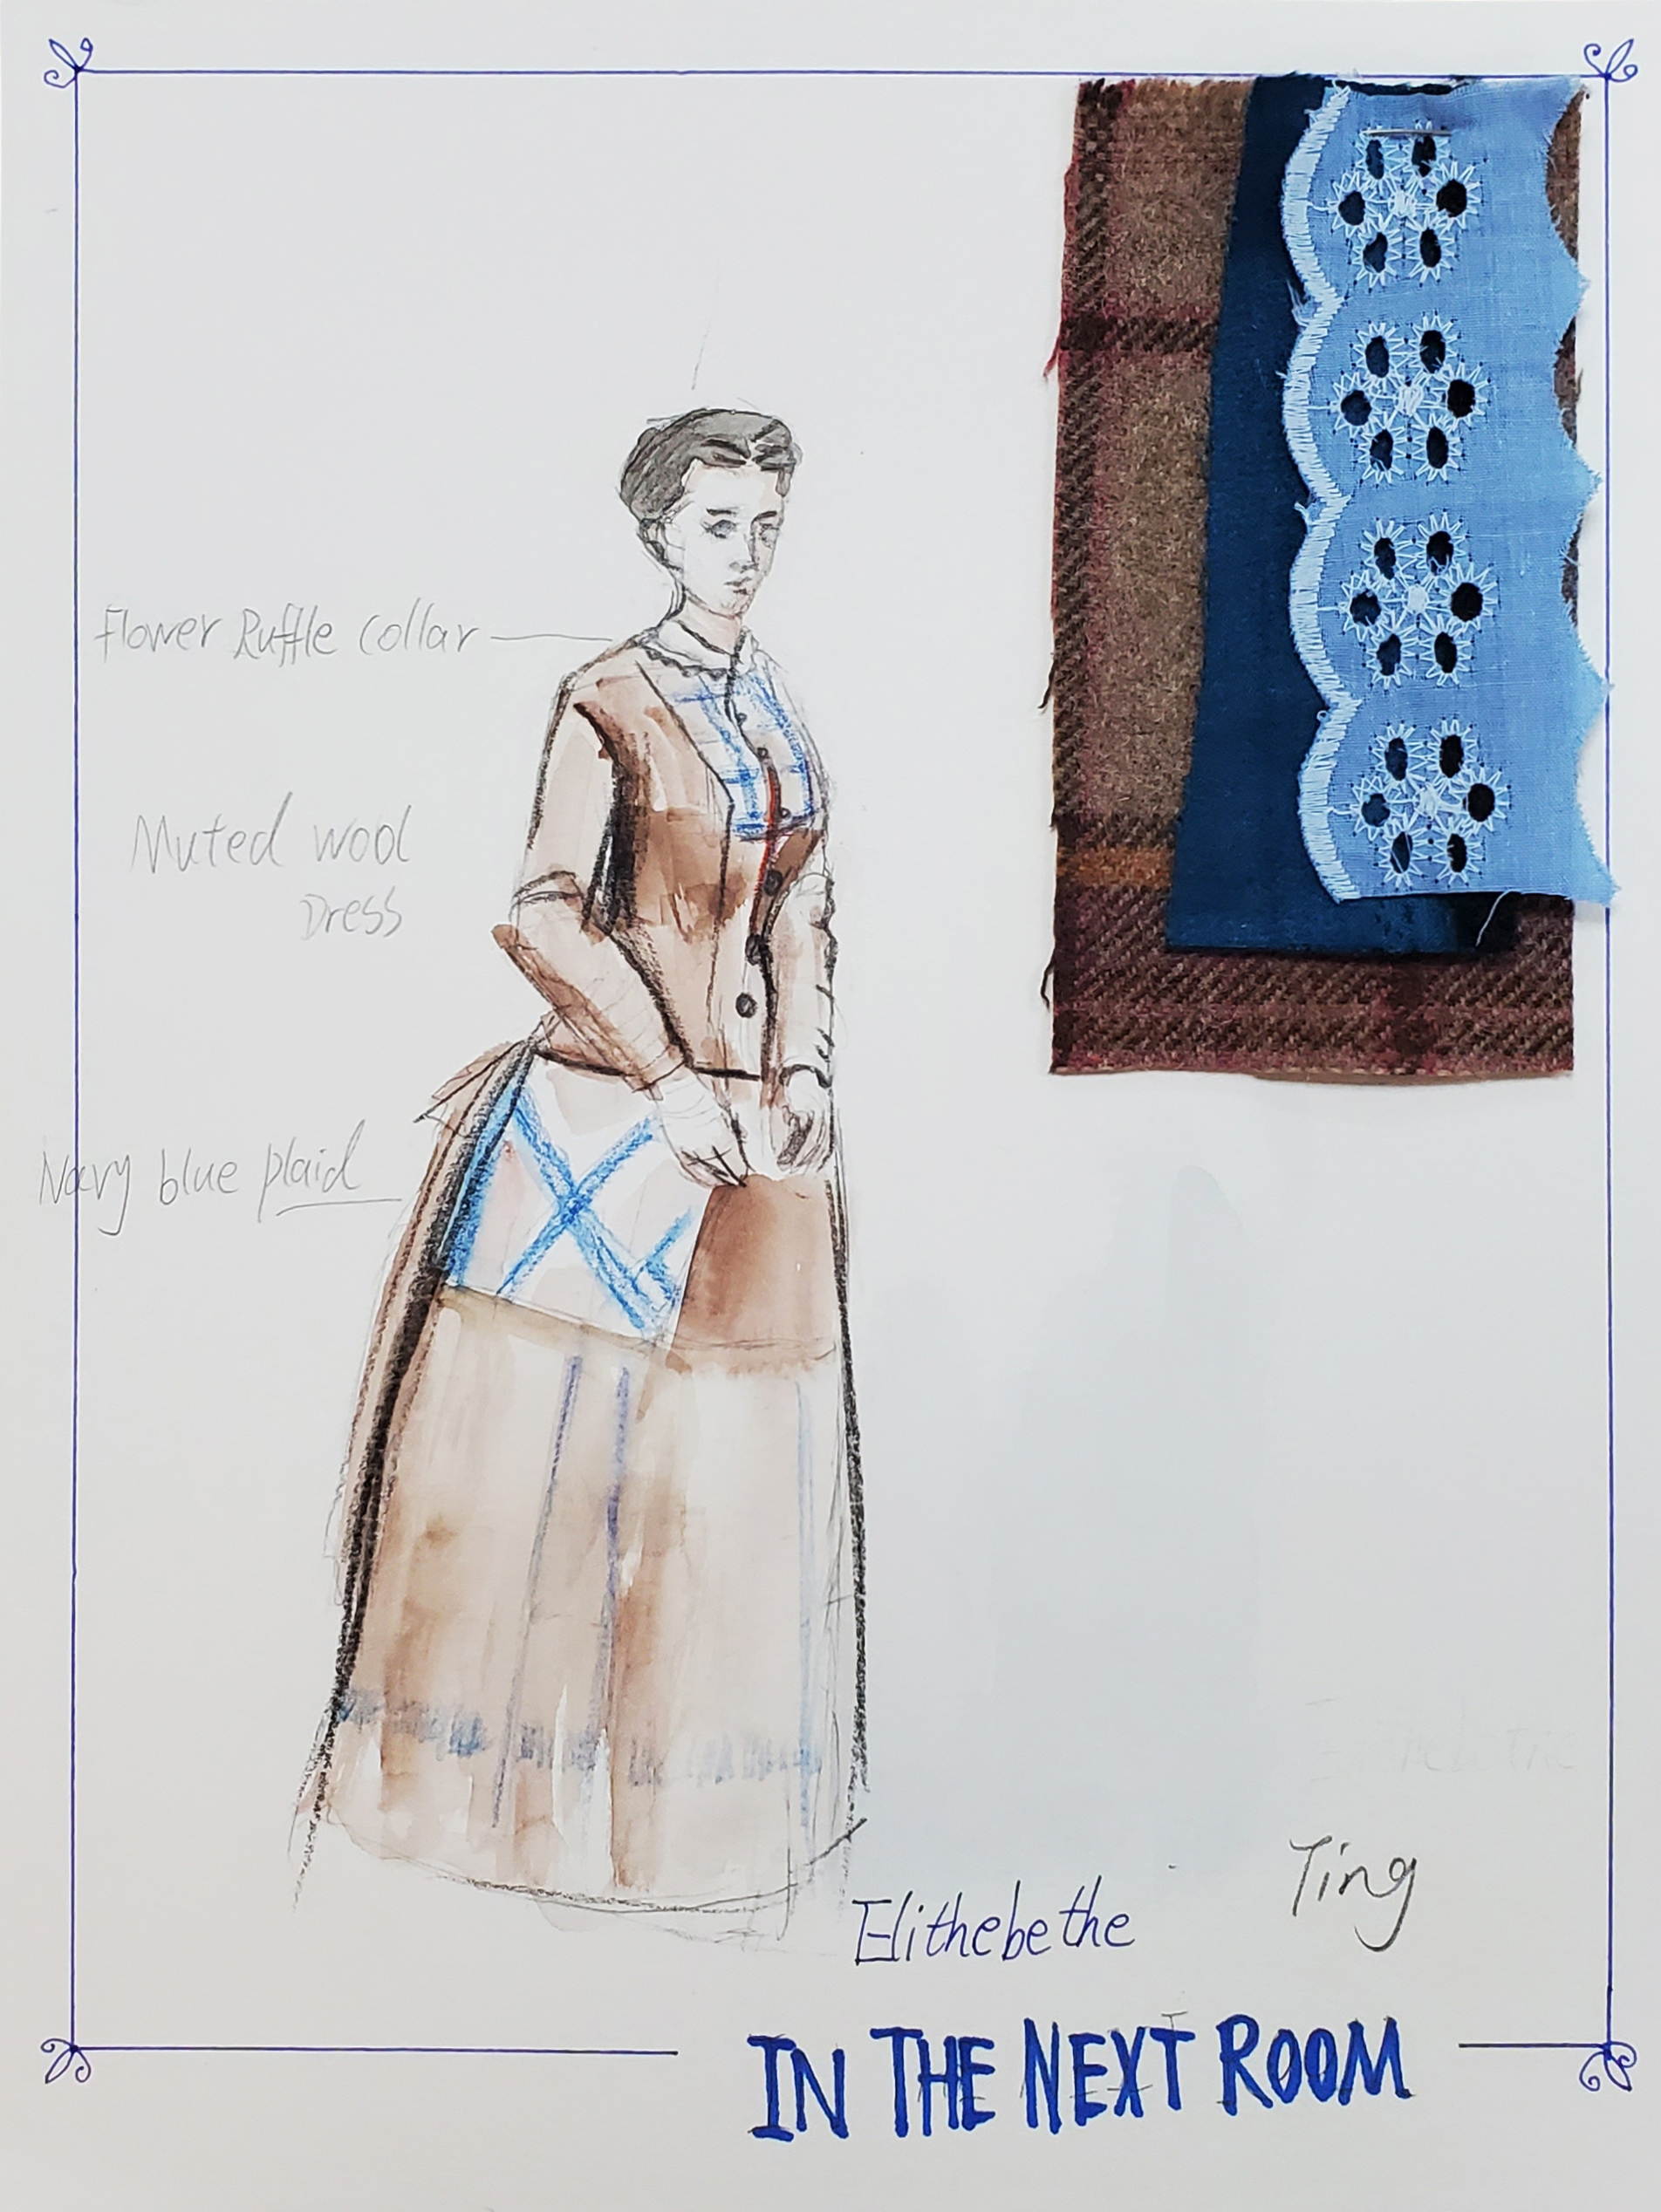 Flower Ruffle collar
Muted wool
Dress
Navy blue plaid
Ting
Elithebethe
IN THE NEXT ROOM